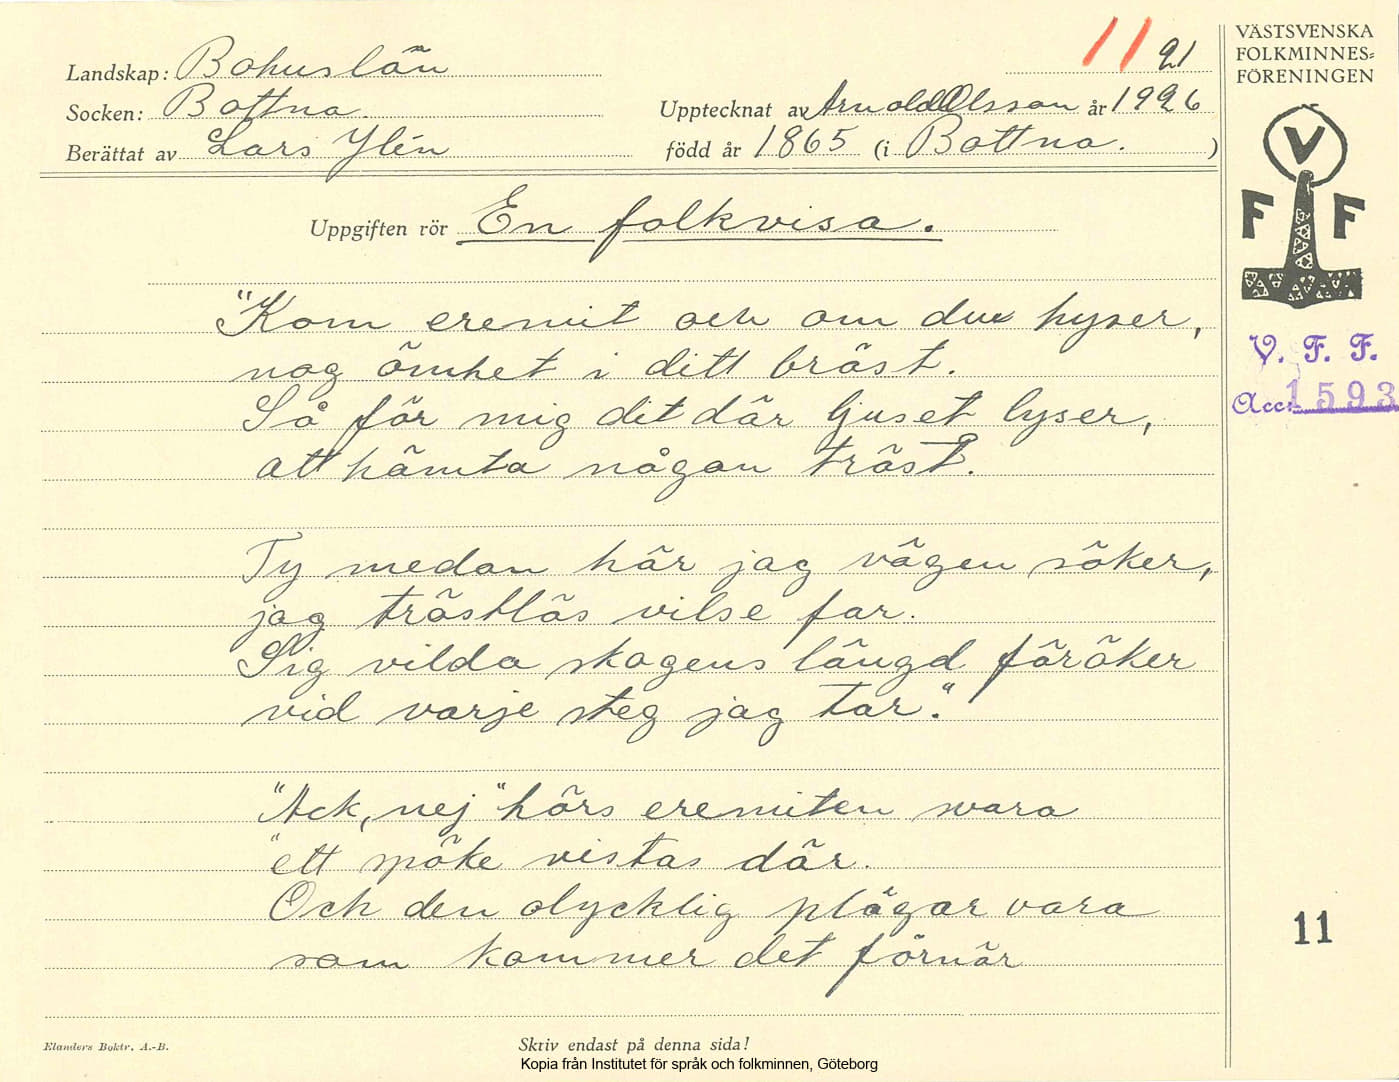 11 21
Landskap: Bohuslän
Socken: Bottna.
Upptecknat av Arnold Olsson år 1926
Berättat av Lars Ylén
född år 1865 (i Bottna. )
Uppgiften rör En folkvisa.
"Kom eremit och om du hyser,
nog ömhet i ditt bröst.
Så för mig dit där ljuset lyser,
att hämta någon tröst.
Ty medan här jag vägen söker,
jag tröstlös vilse far.
Sig vilda skogens längd föröker
vid varje steg jag tar."
"Ack, nej" hörs eremiten svara
"ett spöke vistas där.
Och den olycklig plägar vara
som kommer det förnär
Elanders Boktr. A.-B.
Skriv endast på denna sida!
Kopia från Institutet för språk och folkminnen, Göteborg
VÄSTSVENSKA
FOLKMINNES=
FÖRENINGEN
V
F F
V. F. F.
Acc: 1593
11